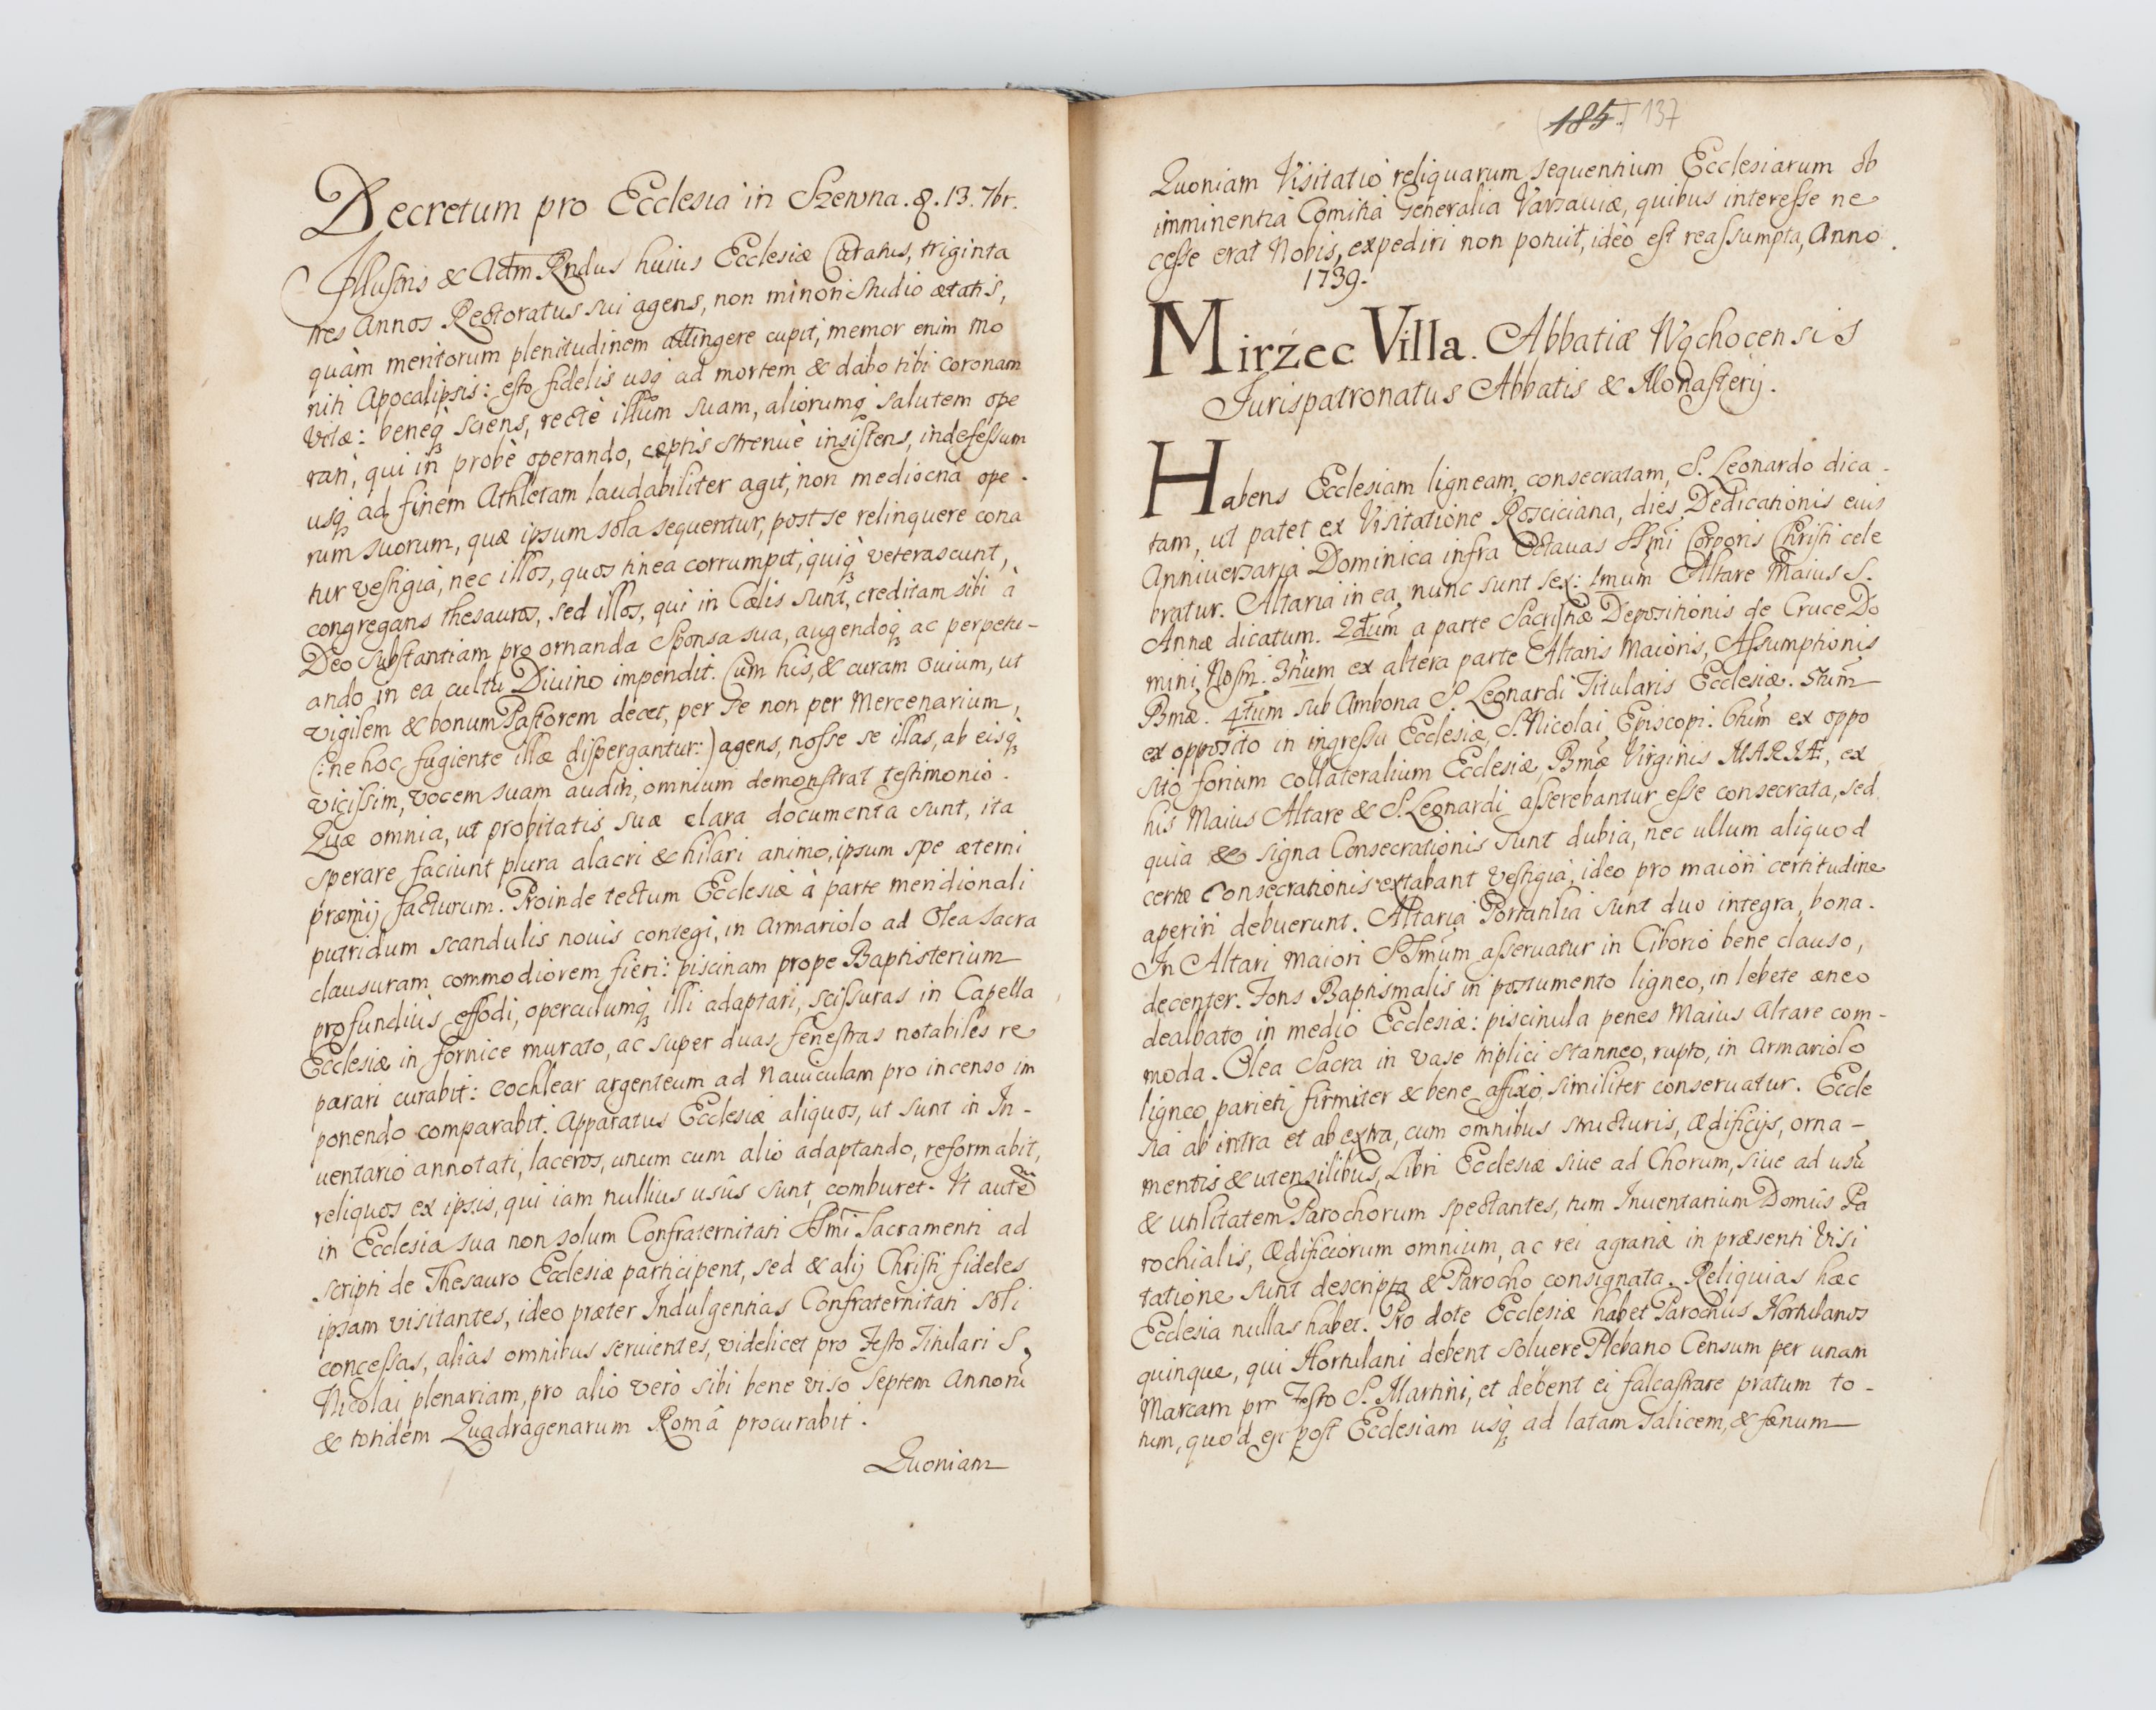 Decretum pro Ecclesia in Szewna. 8. 13. 7br.
Illustris & Adm Rndus huius Ecclesiæ Curatus, triginta
tres Annos Rectoratus sui agens, non minori studio ætatis,
quàm meritorum plenitudinem attingere cupit, memor enim mo
niti Apocalipsis: esto fidelis usq; ad mortem & dabo tibi coronam
Vitæ: beneq; sciens, rectè illum suam, aliorumq; salutem ope
rari, qui in probè operando, cæptis strenuè insistens, indefessum
usq; ad finem Athletam laudabiliter agit, non mediocria ope.
rum suorum, quæ ipsum sola sequentur, post se relinquere cona
tur vestigia, nec illos, quos tinea corrumpit, quiq; veterascunt,
congregans thesauros, sed illos, qui in Cælis sunt, creditam sibi à
Deo substantiam pro ornanda Sponsa sua, augendoq; ac perpetu-
ando in ea cultu Diuino impendit. Cum his, & curam ouium, ut
vigilem & bonum Pastorem decet, per se non per Mercenarium,
(: ne hoc fugiente illæ dispergantur:) agens, nosse se illas, ab eisq;
vicissim, vocem suam audiri, omnium demonstrat testimonio.
Quæ omnia, ut probitatis suæ clara documenta sunt, ita
sperare faciunt plura alacri & hilari animo, ipsum spe æterni
præmij facturum. Proinde tectum Ecclesiæ à parte meridionali
putridum scandulis nouis contegi, in Armariolo ad Olea Sacra
clausuram commodiorem fieri: piscinam prope Baptisterium
profundiùs effodi, operculumq; illi adaptari, scissuras in Capella
Ecclesiæ in fornice murato, ac super duas fenestras notabiles re
parari curabit: cochlear argenteum ad Nauiculam pro incenso im
ponendo comparabit. Apparatus Ecclesiæ aliquos, ut sunt in In-
uentario annotati, laceros, unum cum alio adaptando, reformabit,
reliquos ex ipsis, qui iam nullius usûs sunt, comburet. Ut autẽ
in Ecclesia sua non solum Confraternitati SSmi Sacramenti ad
scripti de Thesauro Ecclesiæ participent, sed & alij Christi fideles
ipsam visitantes, ideo præter Indulgentias Confraternitati soli
concessas, alias omnibus seruientes, videlicet pro Festo Titulari S.
Nicolai plenariam, pro alio verò sibi bene viso septem Annorũ
& totidem Quadragenarum Româ procurabit.
Quoniam
185. 137
Quoniam Visitatio reliquarum sequentium Ecclesiarum ob
imminentia Comitia Generalia Varsauiæ, quibus interesse ne
cesse erat Nobis, expediri non potuit, ideò est reassumpta, Anno.
1739.
Mirżec Villa. Abbatiæ Wąchocensis
Jurispatronatus Abbatis & Monasterij.
Habens Ecclesiam ligneam, consecratam, S. Leonardo dica-
tam, ut patet ex Visitatione Rosciciana, dies Dedicationis eius
Anniuersaria Dominica infra Octauas SSmi Corporis Christi cele
bratur. Altaria in ea, nunc sunt sex: 1mum Altare Maius S.
Annæ dicatum. 2dum a parte Sacristiæ Depositionis de Cruce Do
mini Nostri. 3tium ex altera parte Altaris Maioris, Assumptionis
Bmæ. 4tum sub Ambona S. Leonardi Titularis Ecclesiæ. 5tum
ex opposito in ingressu Ecclesiæ, S. Nicolai Episcopi. 6tum ex oppo
sito forium collateralium Ecclesiæ, Bmæ Virginis MARIÆ, ex
his Maius Altare & S. Leonardi asserebantur esse consecrata, sed
quia & signa Consecrationis sunt dubia, nec ullum aliquod
certæ consecrationis extabant vestigia, ideo pro maiori certitudine
aperiri debuerunt. Altaria Portatilia sunt duo integra, bona.
In Altari maiori SSmum asseruatur in Ciborio bene clauso,
decenter. Fons Baptismalis in postumento ligneo, in lebete æneo
dealbato in medio Ecclesiæ: piscinula penes Maius Altare com-
moda. Olea Sacra in vase triplici stanneo, rupto, in Armariolo
ligneo parieti firmiter & bene affixo, similiter conseruatur. Eccle
sia ab intra et ab extra, cum omnibus structuris, ædificijs, orna-
mentis & utensilibus, Libri Ecclesiæ siue ad Chorum, siue ad usũ
& utilitatem Parochorum spectantes, tum Inuentarium Domûs Pa
rochialis, Ædificiorum omnium, ac rei agrariæ in præsenti Visi
tatione sunt descripta & Parocho consignata. Reliquias hæc
Ecclesia nullas habet. Pro dote Ecclesiæ habet Parochus Hortulanos
quinque, qui Hortulani debent soluere Plebano Censum per unam
Marcam pro Festo S. Martini, et debent ei falcastrare pratum to-
tum, quod est post Ecclesiam usq; ad latam salicem, & fœnum